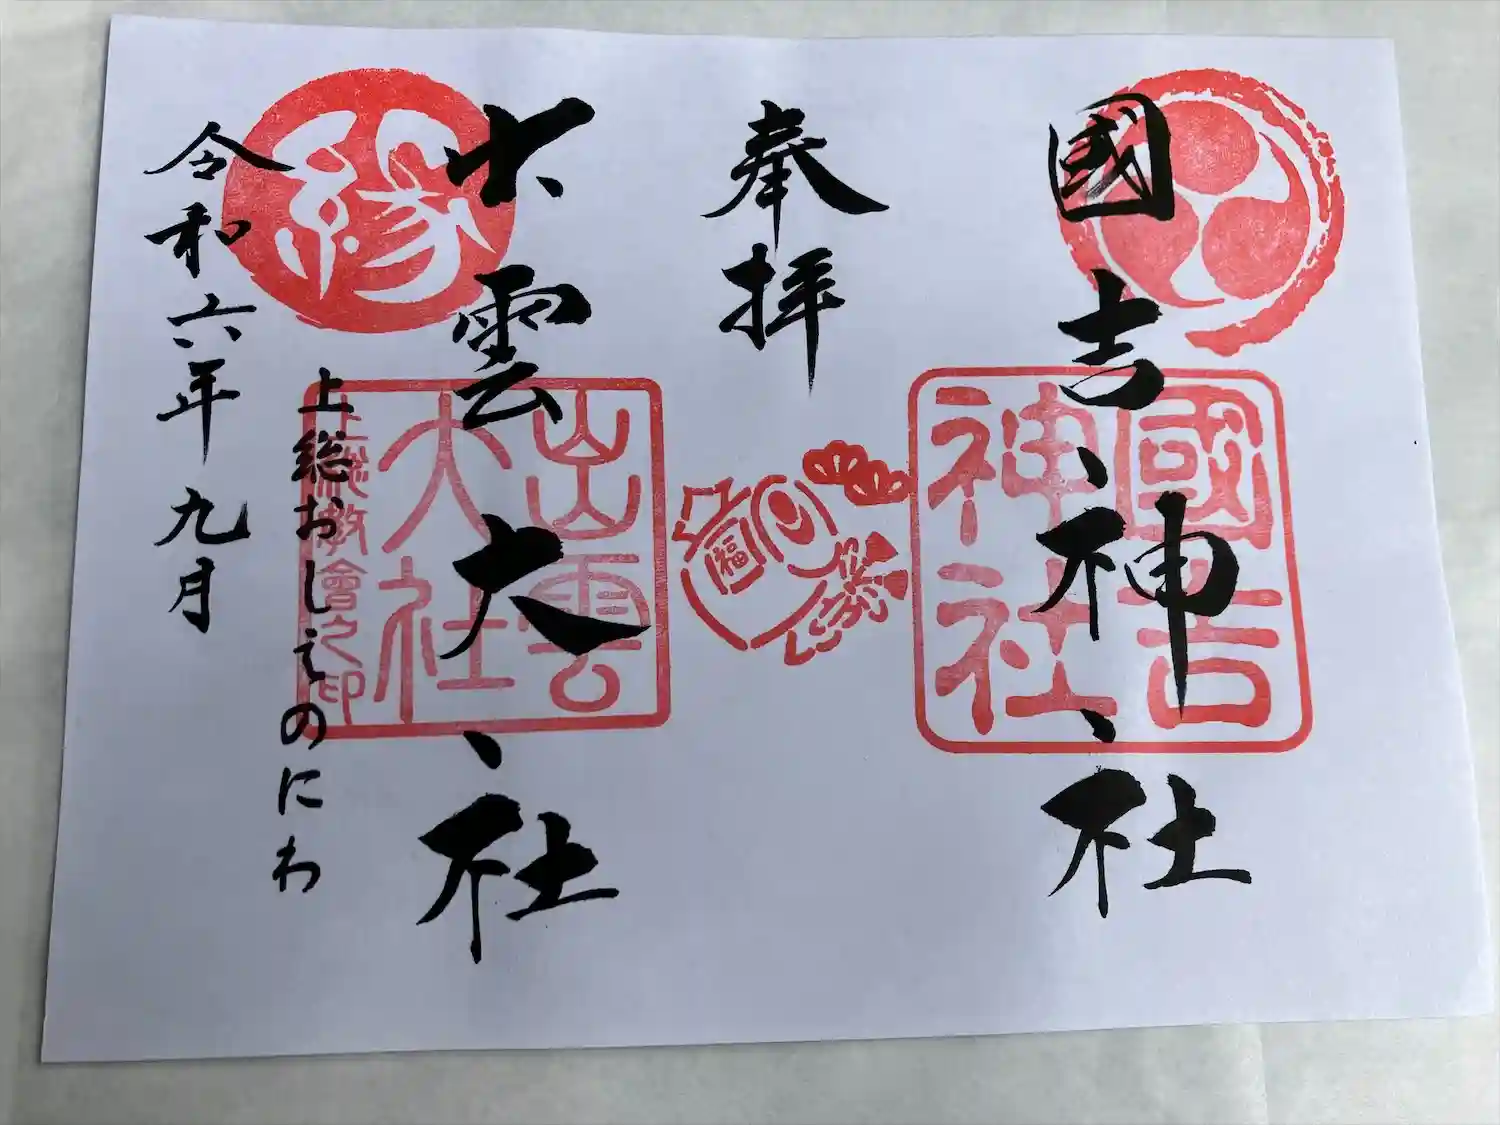 國吉神社
國吉
神社
奉拝
福
出雲大社
出雲
大社
上総教會之印
縁
上総おしえのにわ
令和六年九月